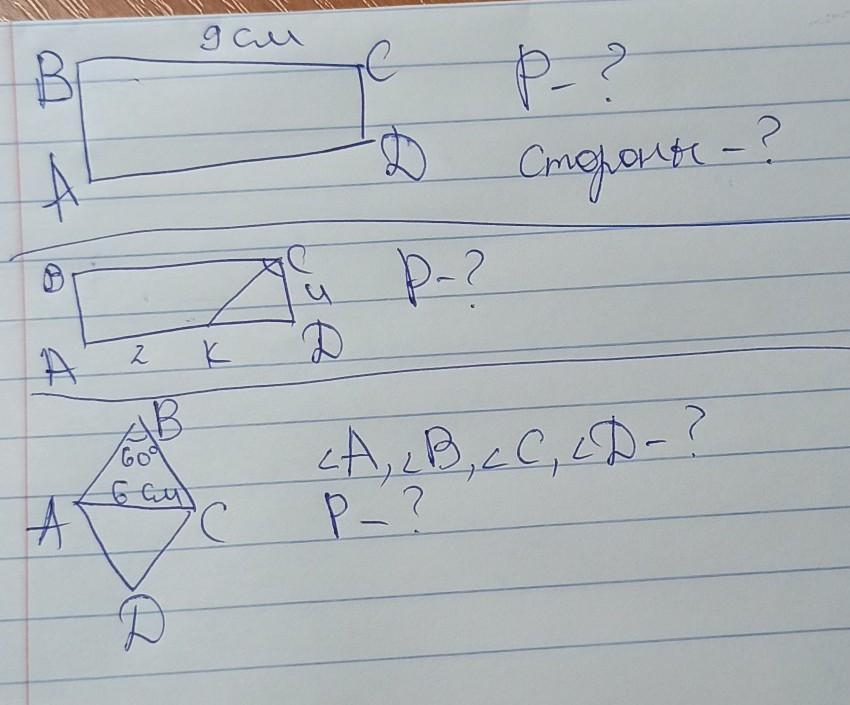 9 см
B C P - ?
A D Стороны - ?
B C P - ?
4
A 2 K D
B
60°
∠A, ∠B, ∠C, ∠D - ?
6 см
A C P - ?
D